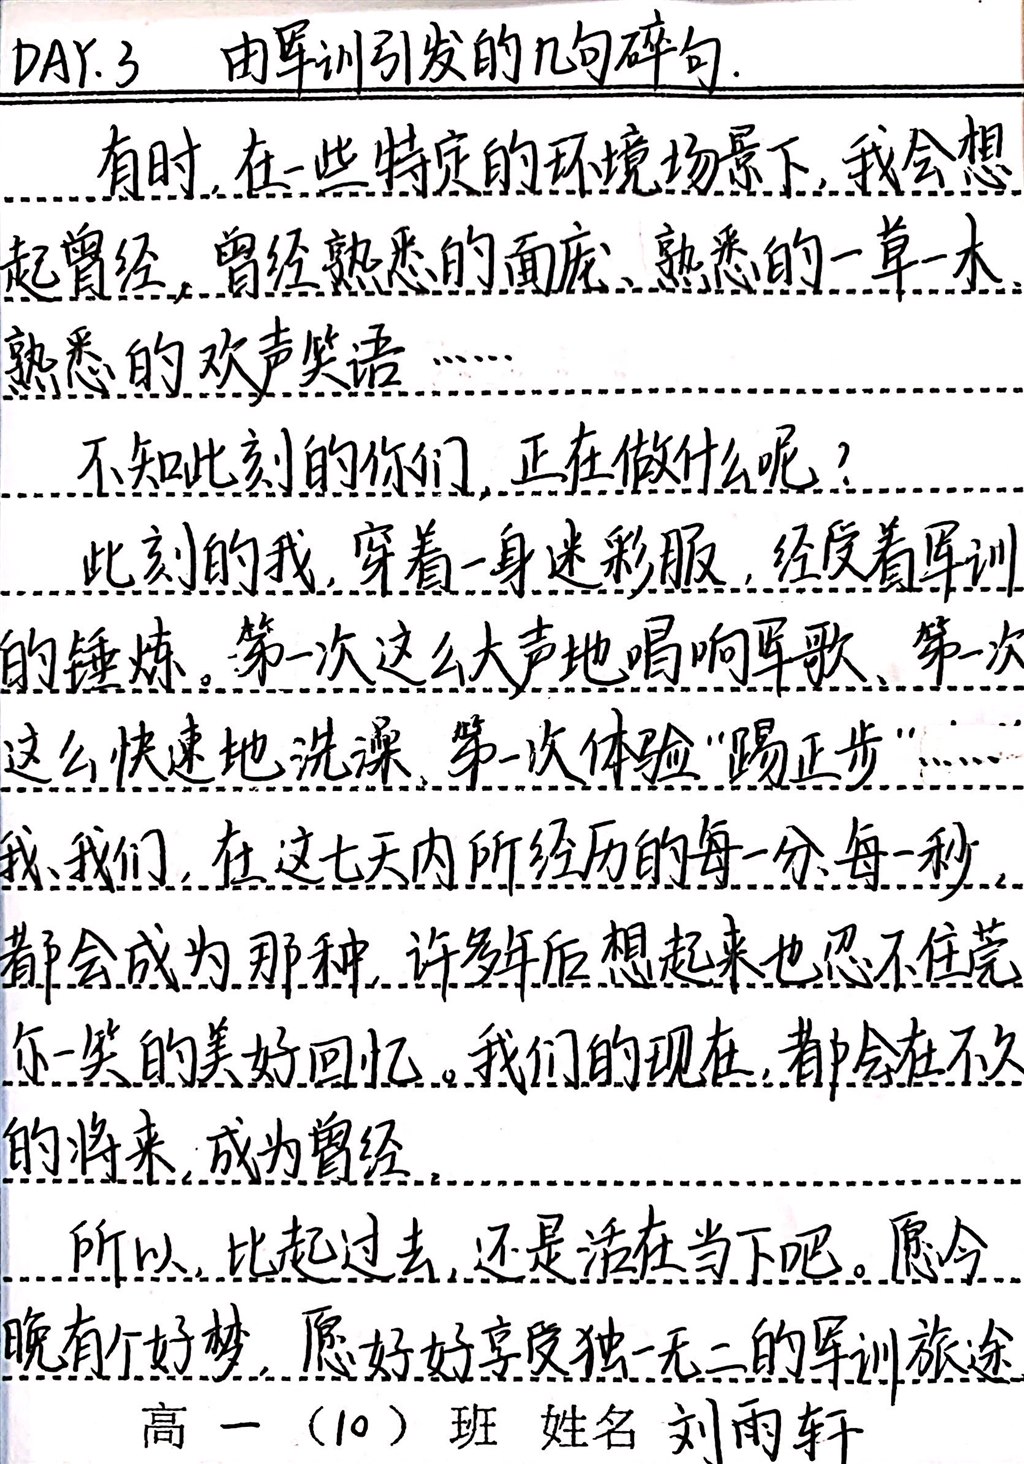 DAY.3 由军训引发的几句碎句.
有时,在一些特定的环境场景下,我会想
起曾经,曾经熟悉的面庞、熟悉的一草一木、
熟悉的欢声笑语……
不知此刻的你们,正在做什么呢?
此刻的我,穿着一身迷彩服,经受着军训
的锤炼。第一次这么大声地唱响军歌、第一次
这么快速地洗澡、第一次体验“踢正步”……
我、我们,在这七天内所经历的每一分、每一秒,
都会成为那种,许多年后想起来也忍不住莞
尔一笑的美好回忆。我们的现在,都会在不久
的将来,成为曾经,
所以,比起过去,还是活在当下吧。愿今
晚有个好梦,愿好好享受独一无二的军训旅途
高一(10)班 姓名 刘雨轩